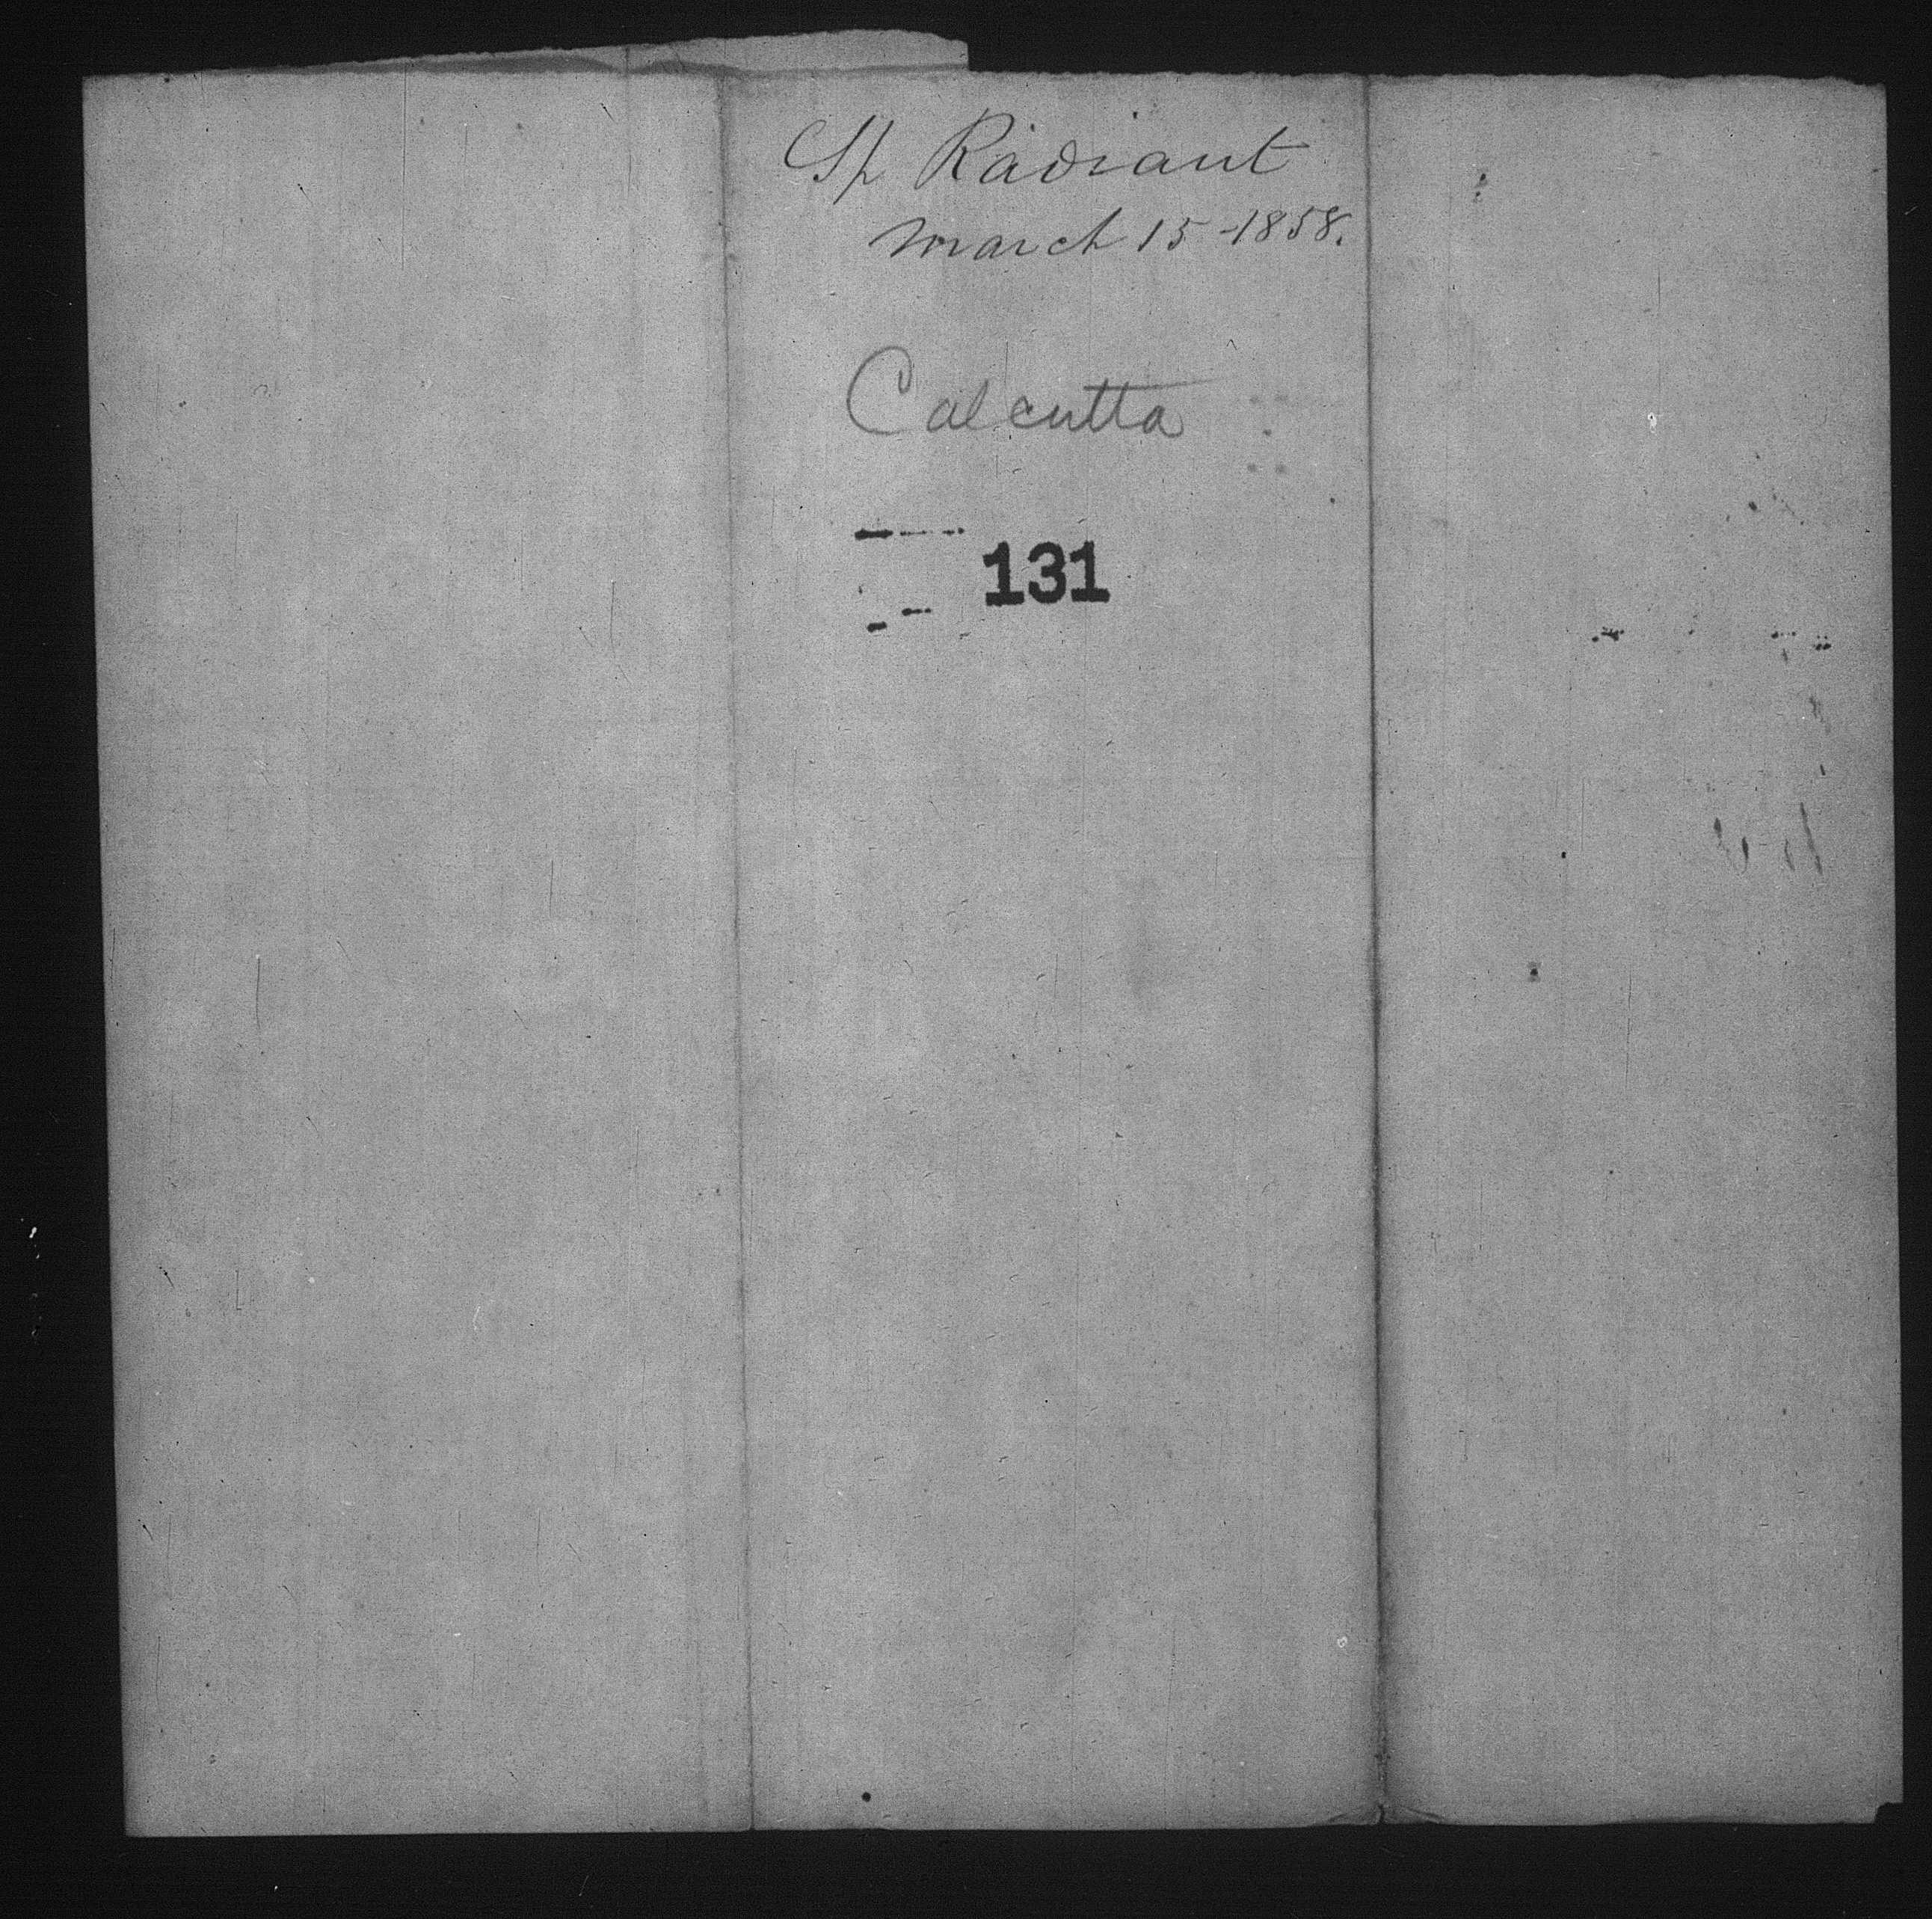 Sh Radiant
march 15-1858.
Calcutta
131